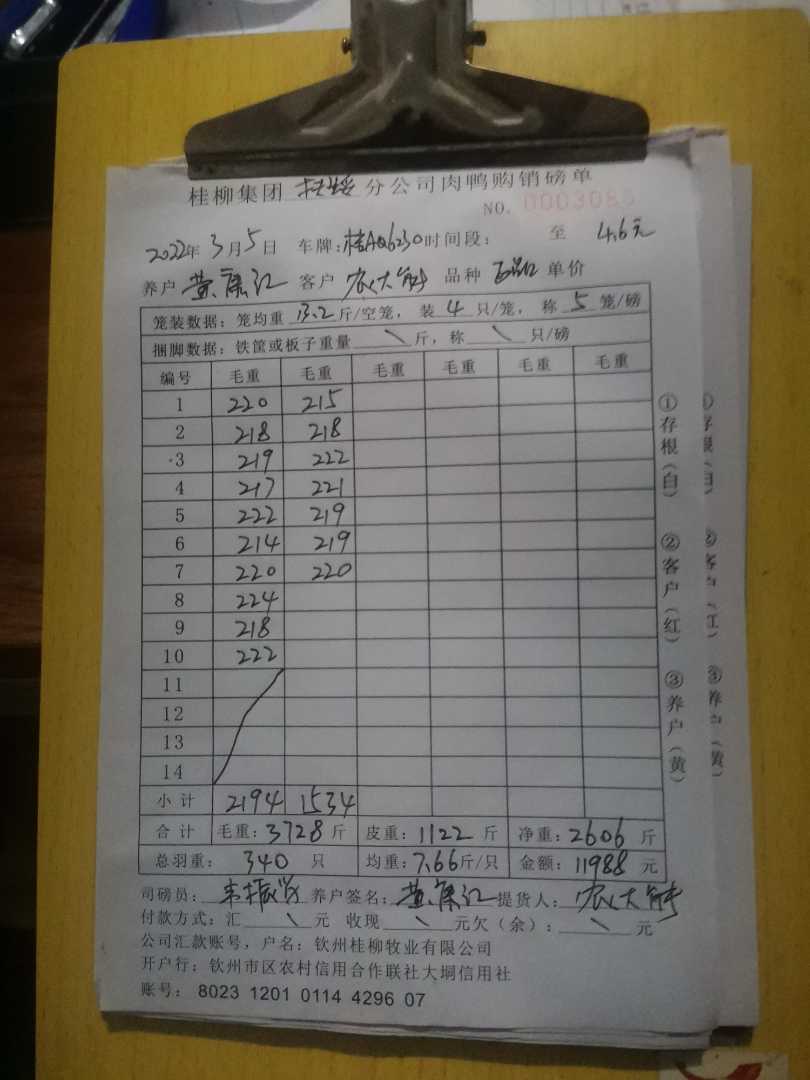 桂柳集团 扶绥 分公司肉鸭购销磅单
NO. 0003085
2022年 3月5日 车牌:桂AQ6230 时间段: 至 4.6元
养户 黄康江 客户 农大能 品种 单价
笼装数据: 笼均重 13.2 斤/空笼, 装 4 只/笼, 称 5 笼/磅
捆脚数据: 铁筐或板子重量 \ 斤, 称 \ 只/磅
编号 毛重 毛重 毛重 毛重 毛重 毛重
1 220 215
2 218 218
3 219 222
4 217 221
5 222 219
6 214 219
7 220 220
8 224
9 218
10 222
11
12
13
14
小计 2194 1534
合计 毛重:3728斤 皮重:1122斤 净重:2606斤
总羽重: 340 只 均重:7.66斤/只 金额:11988 元
司磅员: 韦振 养户签名: 黄康江 提货人: 农大能
付款方式: 汇 \ 元 收现 \ 元欠(余): \ 元
公司汇款账号, 户名: 钦州桂柳牧业有限公司
开户行: 钦州市区农村信用合作联社大垌信用社
账号: 8023 1201 0114 4296 07
①存根(白) ②客户(红) ③养户(黄)